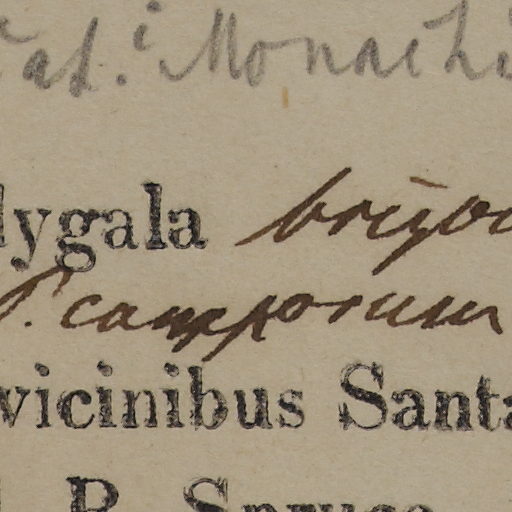 Monachi
lygala brizoi
P. camporum
vicinibus Santa
R. Spruce